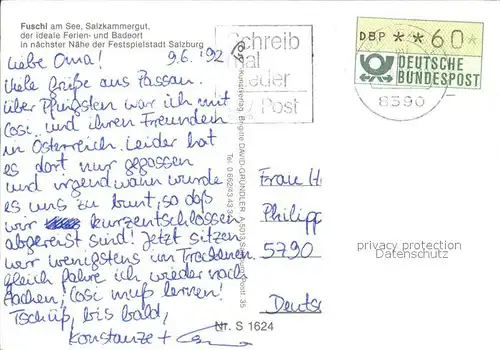 Fuschl am See, Salzkammergut,
der ideale Ferien- und Badeort
in nächster Nähe der Festspielstadt Salzburg
Liebe Oma! 9.6.'92
Viele Grüße aus Passau.
Über Pfingsten war ich mit
Cosi und ihren Freunden
in Österreich. Leider hat
es dort nur gegossen
und irgendwann wurde
es uns zu bunt, so daß
wir kurzentschlossen
abgereist sind! Jetzt sitzen
wir wenigstens im Trockenen.
Gleich fahre ich wieder nach
Aachen, Cosi muß lernen!
Tschüß, bis bald,
Konstanze +
Kunstverlag Brigitte DAVID-GRÜNDLER A 5013 Salzburg Post. 35
Tel. 0 662/43 43 36
Nr. S 1624
Schreib
mal
wieder
Post
DBP **60
DEUTSCHE
BUNDESPOST
8390
Frau
Philipp
5790
Deuts
privacy protection
Datenschutz